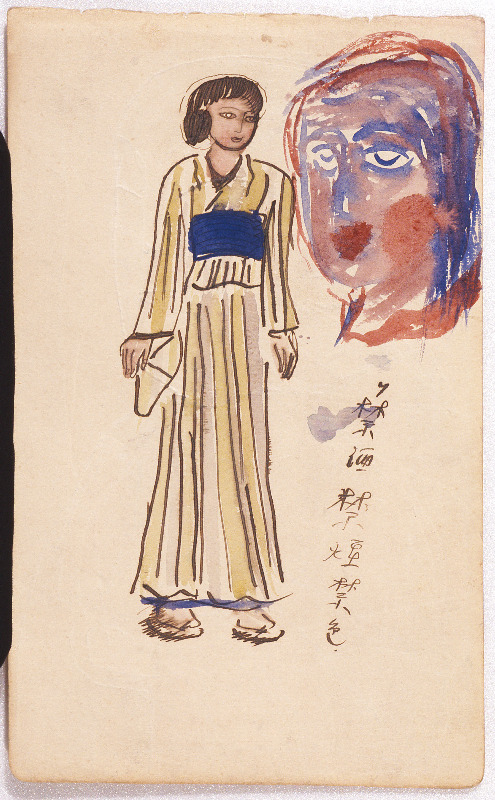 禁酒禁煙禁色